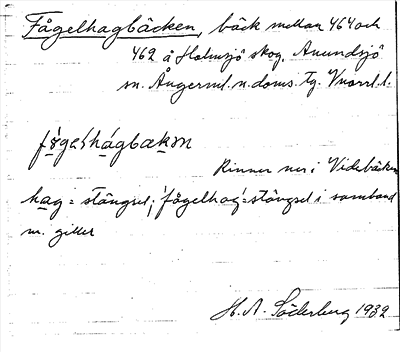 Fågelhagbäcken, bäck mellan 464 och
462 å Holmsjö skog, Anundsjö
sn. Ångerml. n. doms. tg. Vnorrl. l.
Rinner ner i Videbäcken
hag = stängsel; 'fågelhag' = stängsel i samband
m. giller
H. A. Söderberg 1932